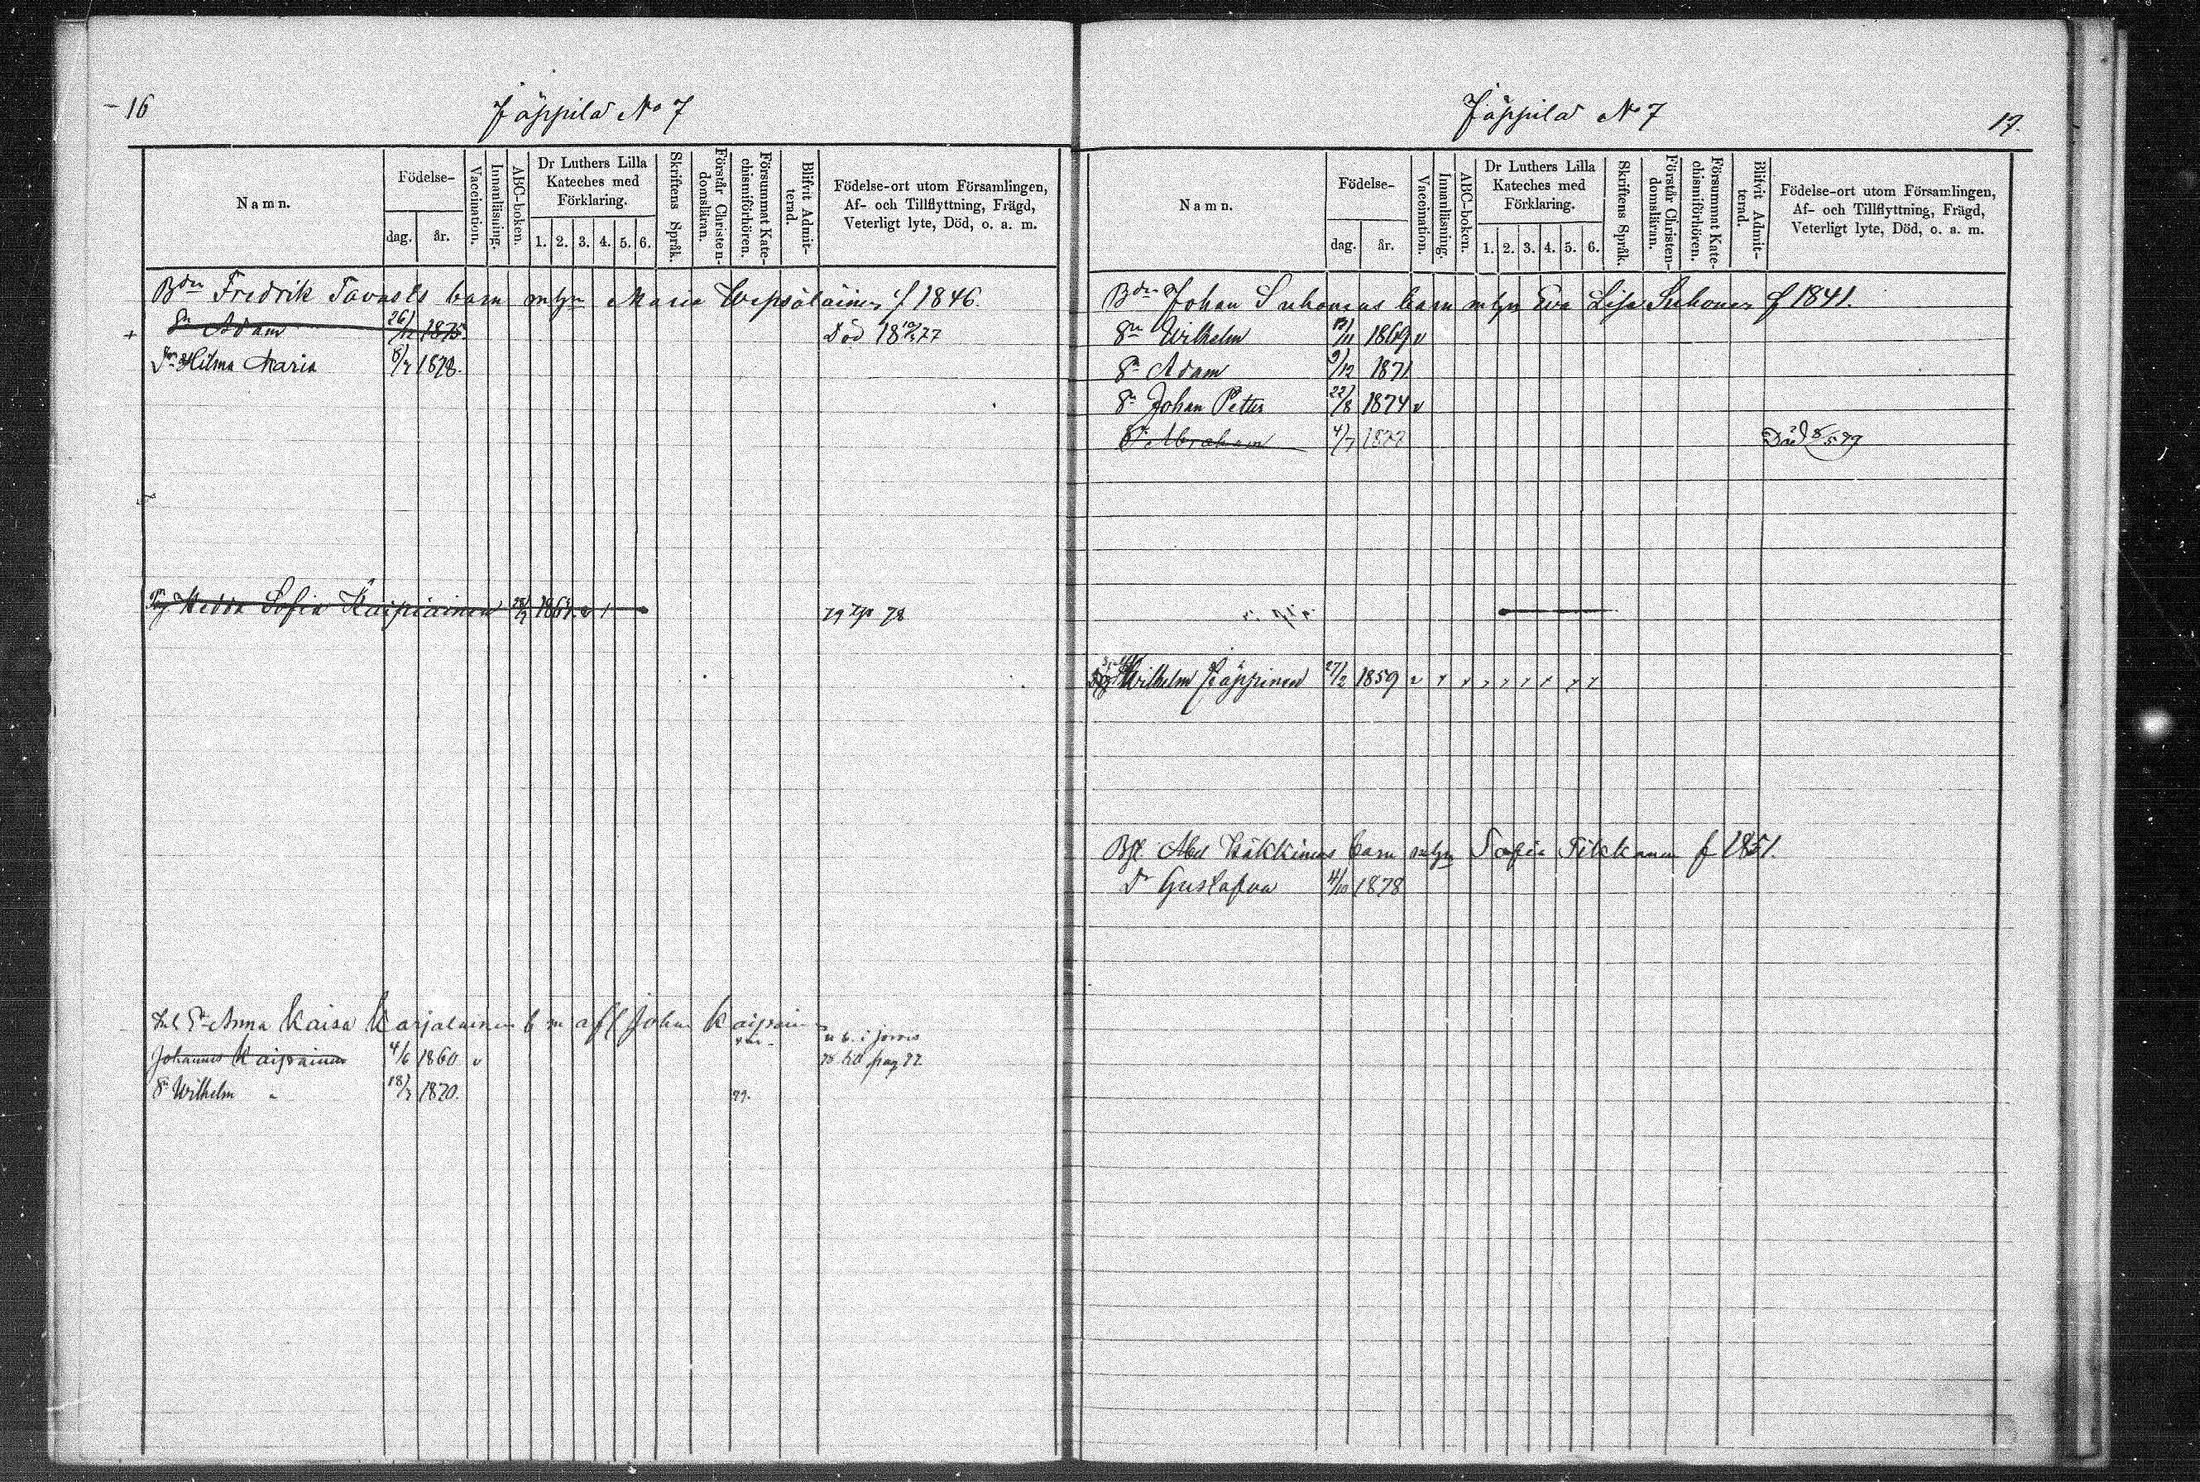 16
Jäppilä No 7
Namn.
Födelse-
dag. år.
Vaccination.
Innanläsning.
ABC-boken.
Dr Luthers Lilla
Kateches med
Förklaring.
1. 2. 3. 4. 5. 6.
Skriftens Språk.
Förstår Christen-
domsläran.
Försummat Kate-
chismiförhören.
Blifvit Admit-
terad.
Födelse-ort utom Församlingen,
Af- och Tillflyttning, Frägd,
Veterligt lyte, Död, o. a. m.
Bdn Fredrik Tavasts barn mtgn Maria f 1846.
+ Sn Adam 26/12 1875. Död 77
Dr Hilma Maria 8/7 1878.
Hedda Sofia Kaipiainen 1864. v 1 78
Anna Kaisa Karjalainen b m afl Johan
Johannes Kaipiainen 4/6 1860 v pag
Sn Wilhelm " 18/7 1870. 79.
Jäppilä No 7
17.
Namn.
Födelse-
dag. år.
Vaccination.
Innanläsning.
ABC-boken.
Dr Luthers Lilla
Kateches med
Förklaring.
1. 2. 3. 4. 5. 6.
Skriftens Språk.
Förstår Christen-
domsläran.
Försummat Kate-
chismiförhören.
Blifvit Admit-
terad.
Födelse-ort utom Församlingen,
Af- och Tillflyttning, Frägd,
Veterligt lyte, Död, o. a. m.
Bdn Johan Suhonens barn mtgn Eva Lisa Suhonen f 1841.
Sn Wilhelm 1869 v
Sn Adam 9/12 1871
Sn Johan Petter 22/8 1874 v
Sn Abraham 4/7 1877 Död 8/5 79
Wilhelm 27/2 1859 v
Abel Häkkinens barn mtgn Sofia Tikkanen f 1851.
Dr Gustafva 4/10 1878